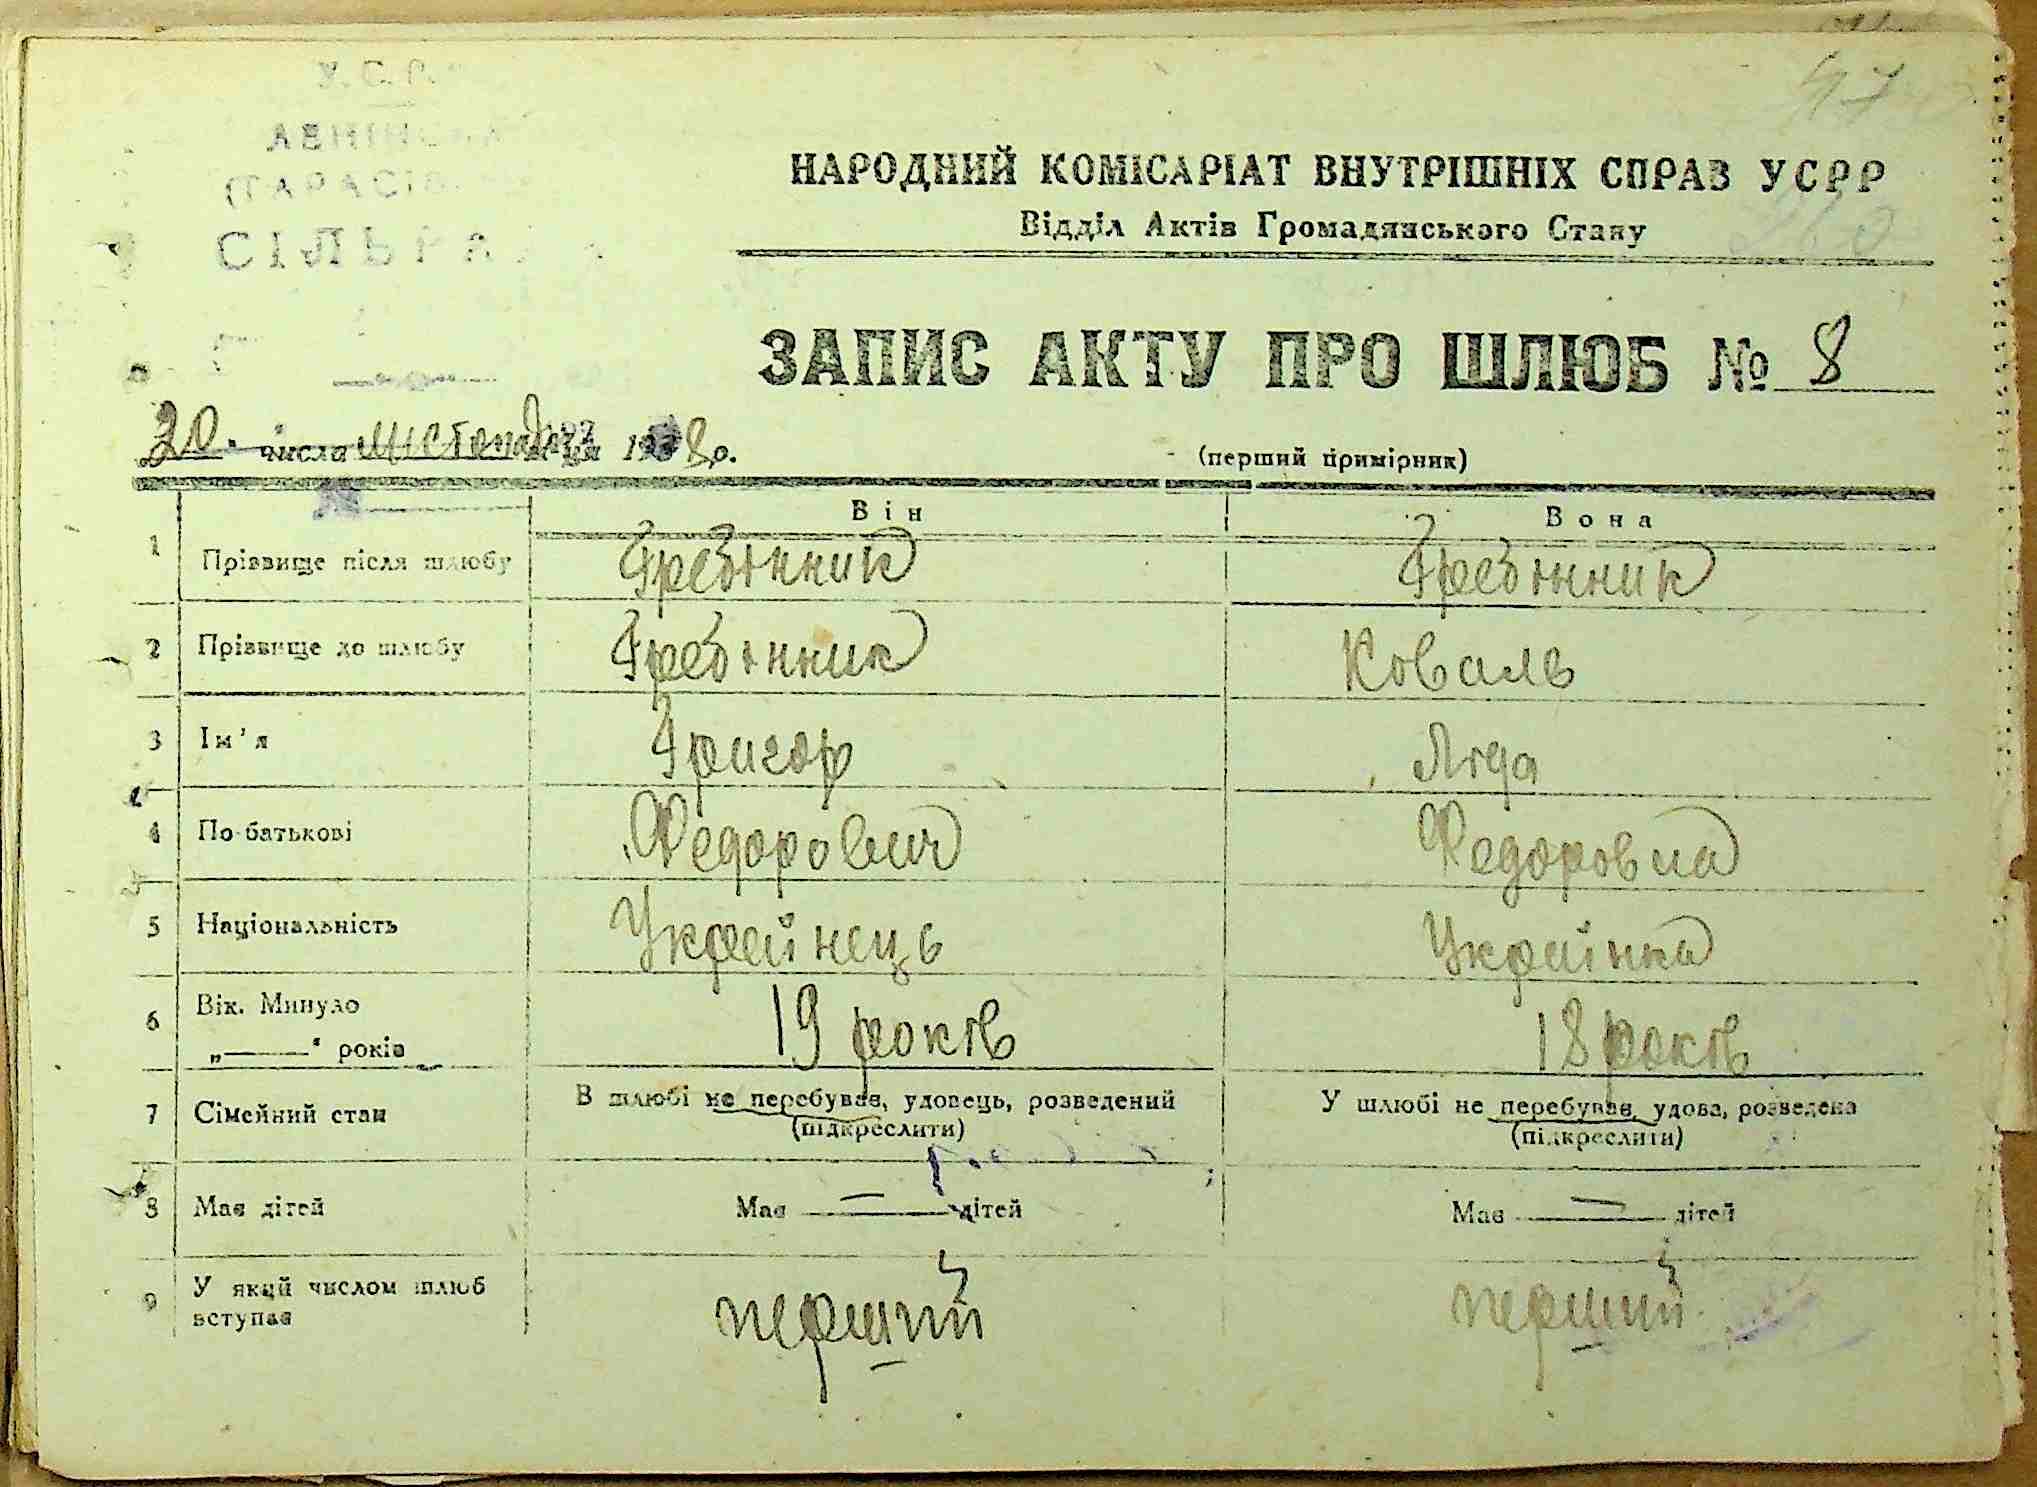 У.С.Р.
СІЛЬРАДА
47
НАРОДНИЙ КОМІСАРІАТ ВНУТРІШНІХ СПРАВ УСРР
Відділ Актів Громадянського Стану
ЗАПИС АКТУ ПРО ШЛЮБ № 8
20 числа листопада м-ця 1938 р.
(перший примірник)
Він Вона
1 Прізвище після шлюбу Гребінник Гребінник
2 Прізвище до шлюбу Гребінник Коваль
3 Ім'я Григор Ліда
4 По-батькові Федорович Федоровна
5 Національність Украйнець Украйінка
6 Вік. Минуло
„——" років 19 років 18 років
7 Сімейний стан В шлюбі не перебував, удовець, розведений У шлюбі не перебував, удова, розведена
(підкреслити) (підкреслити)
8 Має дітей Має — дітей Має — дітей
9 У який числом шлюб
вступає перший перший